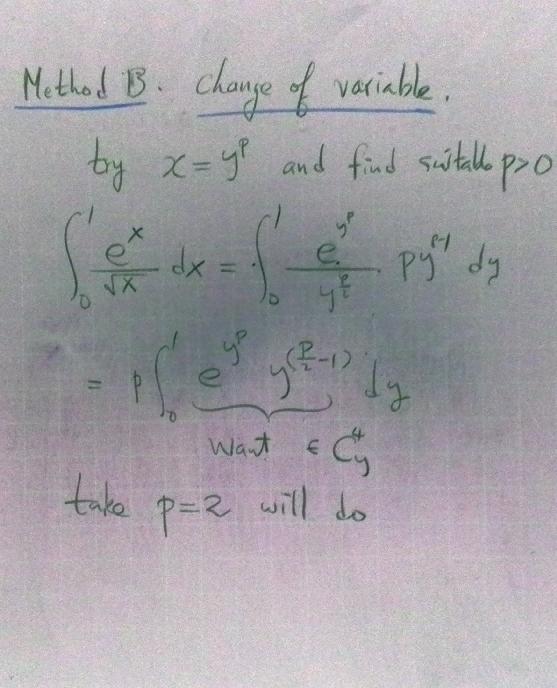 Method B. Change of variable.
try x = y^p and find suitable p>0
∫_0^1 e^x/√x dx = ∫_0^1 e^{y^p}/y^{p/2} · p y^{p-1} dy
= p ∫_0^1 e^{y^p} y^{(p/2 - 1)} dy
Want ∈ C_y^4
take p=2 will do